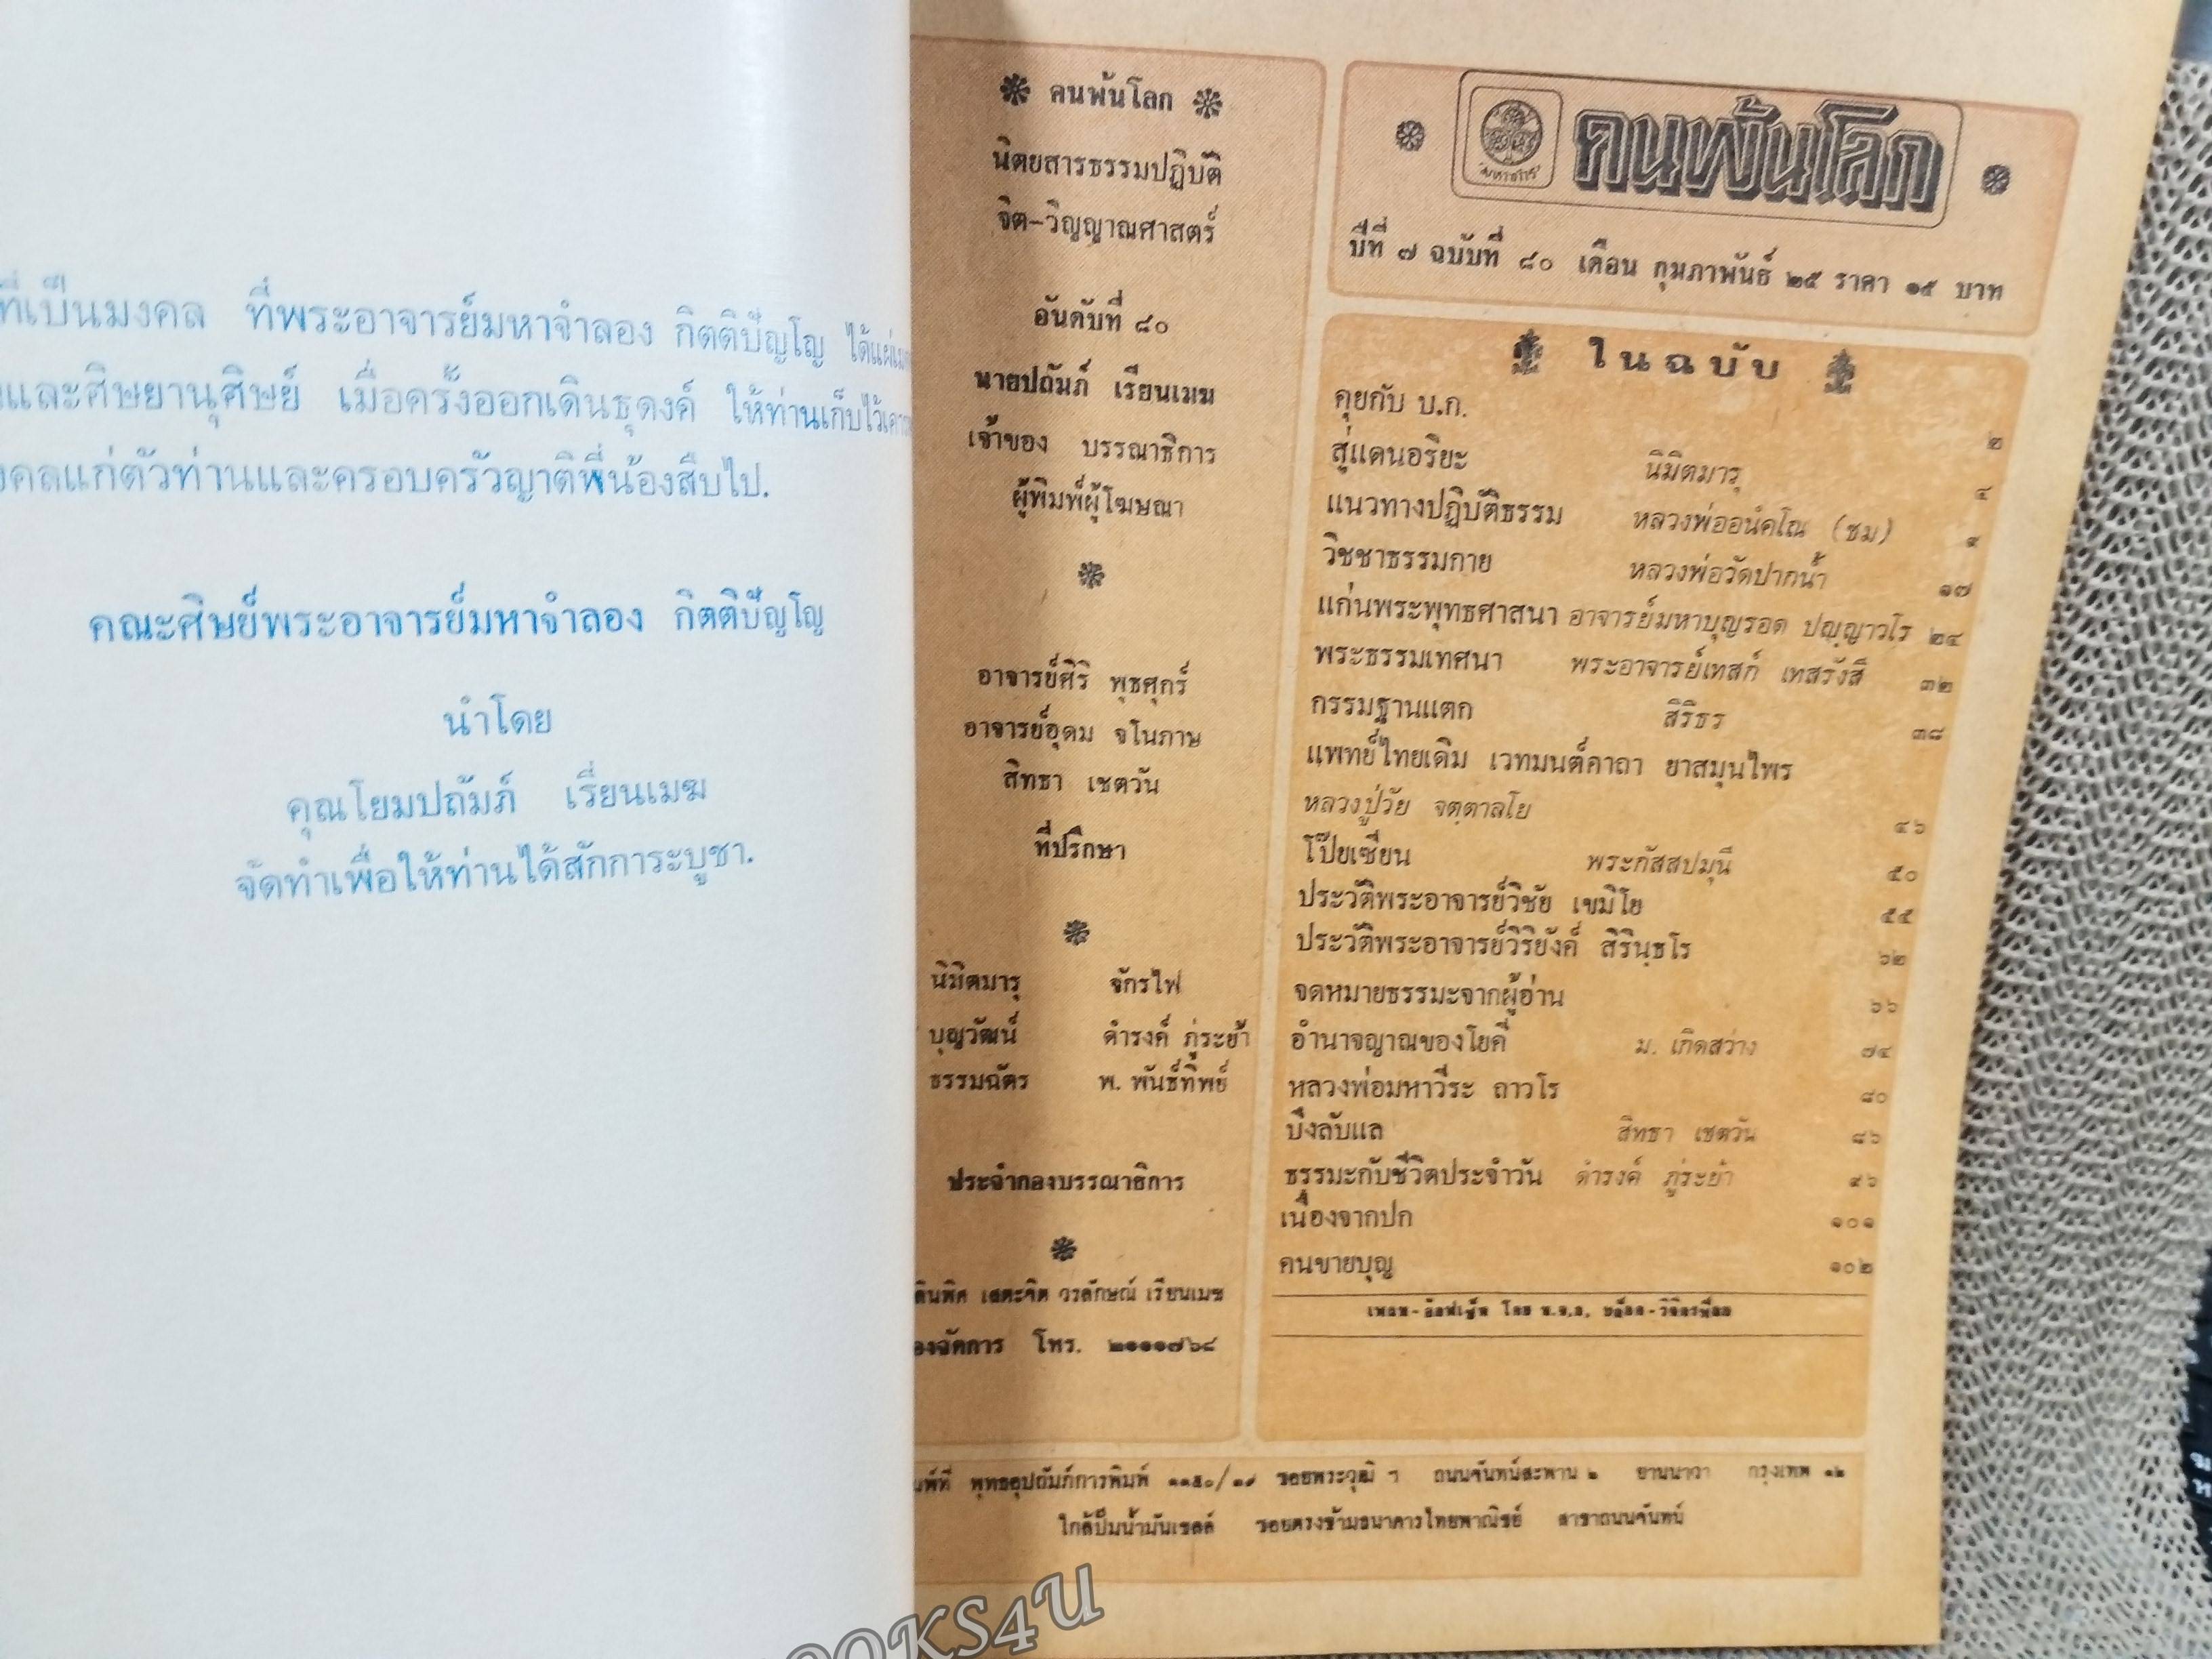 ที่เป็นมงคล ที่พระอาจารย์มหาจำลอง กิตติปัญโญ ได้แผ่เม
และศิษยานุศิษย์ เมื่อครั้งออกเดินธุดงค์ ให้ท่านเก็บไว้
คลแก่ตัวท่านและครอบครัวญาติพี่น้องสืบไป.
คณะศิษย์พระอาจารย์มหาจำลอง กิตติปัญโญ
นำโดย
คุณโยมปถัมภ์ เรี่ยนเมฆ
จัดทำเพื่อให้ท่านได้สักการะบูชา.
คนพ้นโลก
นิตยสารธรรมปฏิบัติ
จิต-วิญญาณศาสตร์
อันดับที่ ๘๐
นายปถัมภ์ เรียนเมฆ
เจ้าของ บรรณาธิการ
ผู้พิมพ์ผู้โฆษณา
อาจารย์ศิริ พุธศุกร์
อาจารย์อุดม จโนภาษ
สิทธา เชตวัน
ที่ปรึกษา
นิมิตมารุ จักรไฟ
บุญวัฒน์ ดำรงค์ ภู่ระย้า
ธรรมฉัตร พ. พันธ์ทิพย์
ประจำกองบรรณาธิการ
เสตะจิต วรลักษณ์ เรียนเมฆ
องจัดการ โทร. ๒๑๑๑๗๖๘
มหาชาร์
คนพ้นโลก
ปีที่ ๗ ฉบับที่ ๘๐ เดือน กุมภาพันธ์ ๒๕ ราคา ๑๕ บาท
ในฉบับ
คุยกับ บ.ก. ๒
สู่แดนอริยะ นิมิตมารุ ๔
แนวทางปฏิบัติธรรม หลวงพ่ออนํคโณ (ชม) ๙
วิชชาธรรมกาย หลวงพ่อวัดปากน้ำ ๑๗
แก่นพระพุทธศาสนา อาจารย์มหาบุญรอด ปญฺญาวโร ๒๔
พระธรรมเทศนา พระอาจารย์เทสก์ เทสรังสี ๓๒
กรรมฐานแตก สิริธร ๓๘
แพทย์ไทยเดิม เวทมนต์คาถา ยาสมุนไพร
หลวงปู่วัย จตฺตาลโย ๔๖
โป๊ยเซียน พระกัสสปมุนี ๕๐
ประวัติพระอาจารย์วิชัย เขมิโย ๕๕
ประวัติพระอาจารย์วิริยังค์ สิรินฺธโร ๖๒
จดหมายธรรมะจากผู้อ่าน ๖๖
อำนาจญาณของโยคี ม. เกิดสว่าง ๗๔
หลวงพ่อมหาวีระ ถาวโร ๘๐
บึงลับแล สิทธา เชตวัน ๘๖
ธรรมะกับชีวิตประจำวัน ดำรงค์ ภู่ระย้า ๙๖
เนื่องจากปก ๑๐๑
คนขายบุญ ๑๐๒
เพลท-อ๊อฟเซ็ท โดย
พ์ที่ พุทธอุปถัมภ์การพิมพ์ ๑๑๕๐/๑๙ ซอยพระวุฒิ ฯ ถนนจันทน์สะพาน ๒ ยานนาวา กรุงเทพ ๑๒
ใกล้ปั๊มน้ำมันเชลล์ ซอยตรงข้ามธนาคารไทยพาณิชย์ สาขาถนนจันทน์
OOKS4U